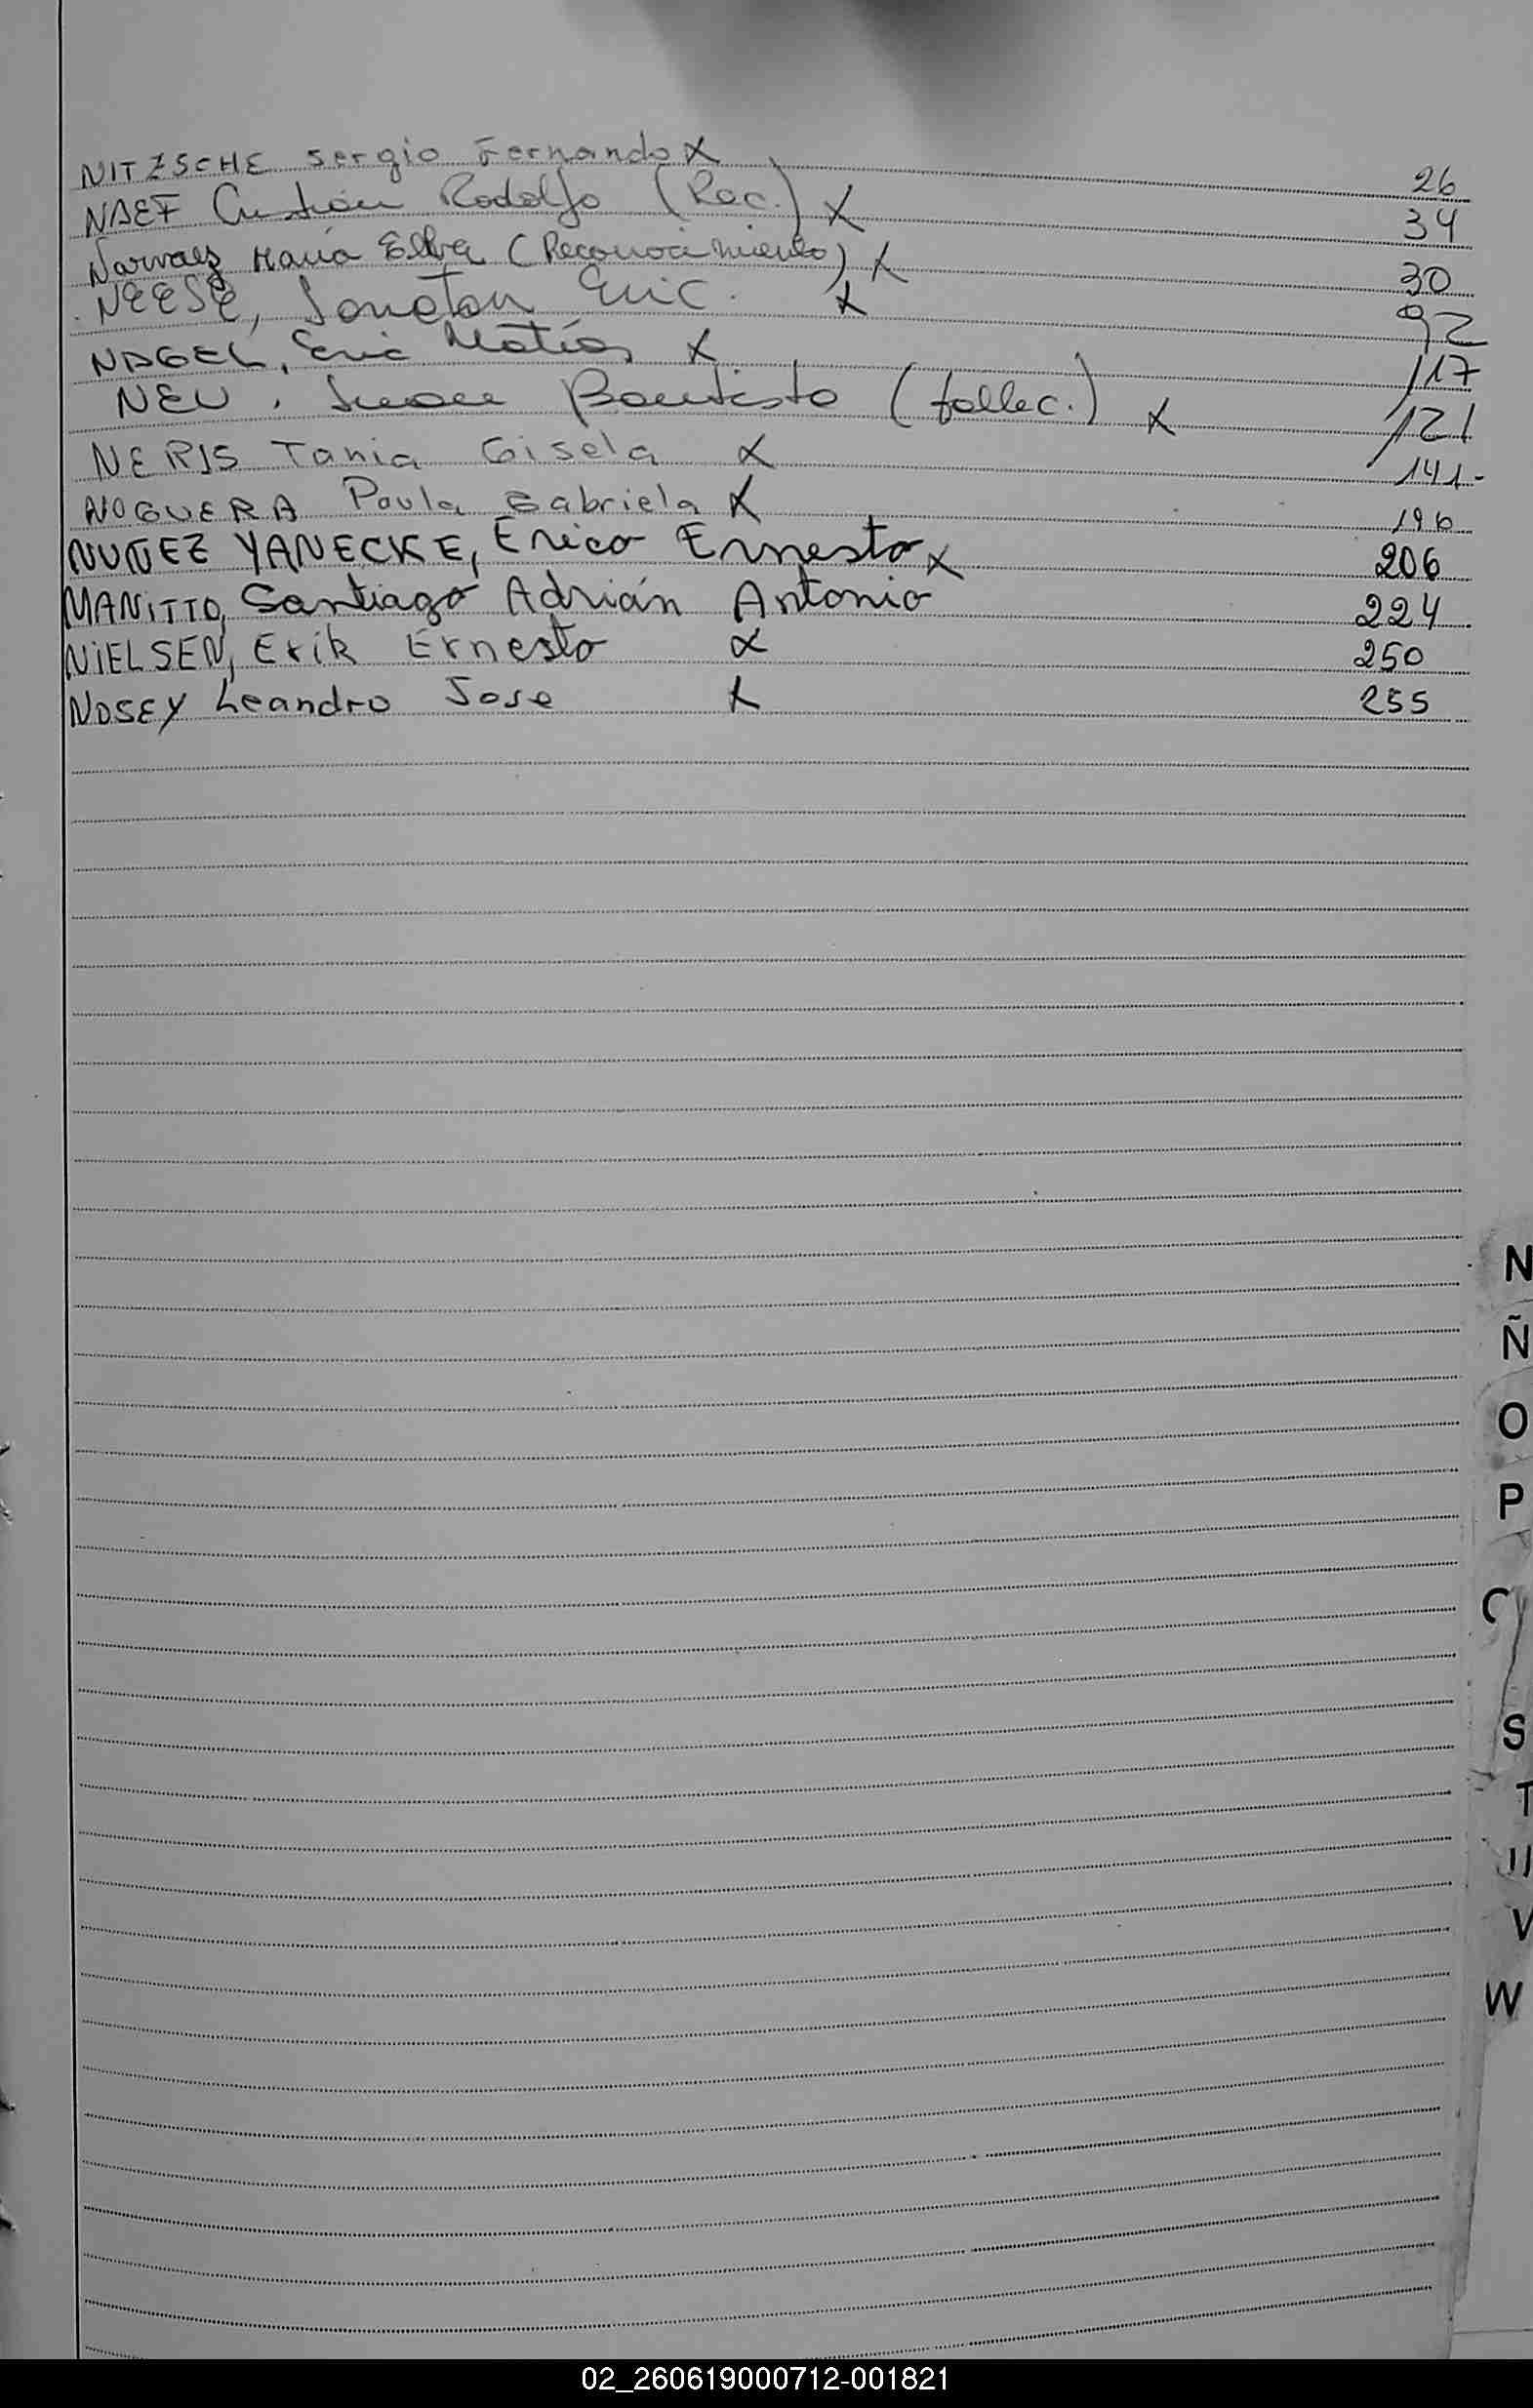 NITZSCHE Sergio Fernando X 26
NAEF Cristián Rodolfo (Rec.) X 34
Narvaez María Elba (Reconocimiento) X 30
NEESE, Jonatan Eric. X 92
NAGEL, Eric Matías X 117
NEU, Juan Bautista (fallec.) X 121
NERIS Tania Gisela X 141-
NOGUERA Paula Gabriela X 196
NUÑEZ YANECKE, Erico Ernesto X 206
MANITTO, Santiago Adrián Antonio 224
NiELSEN, Erik Ernesto X 250
NOSEY Leandro Jose X 255
N
Ñ
O
P
S
T
U
V
W
02_260619000712-001821